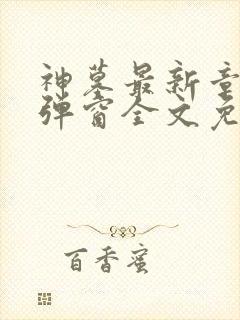 神墓最新章
弹窗全文免
百香蜜